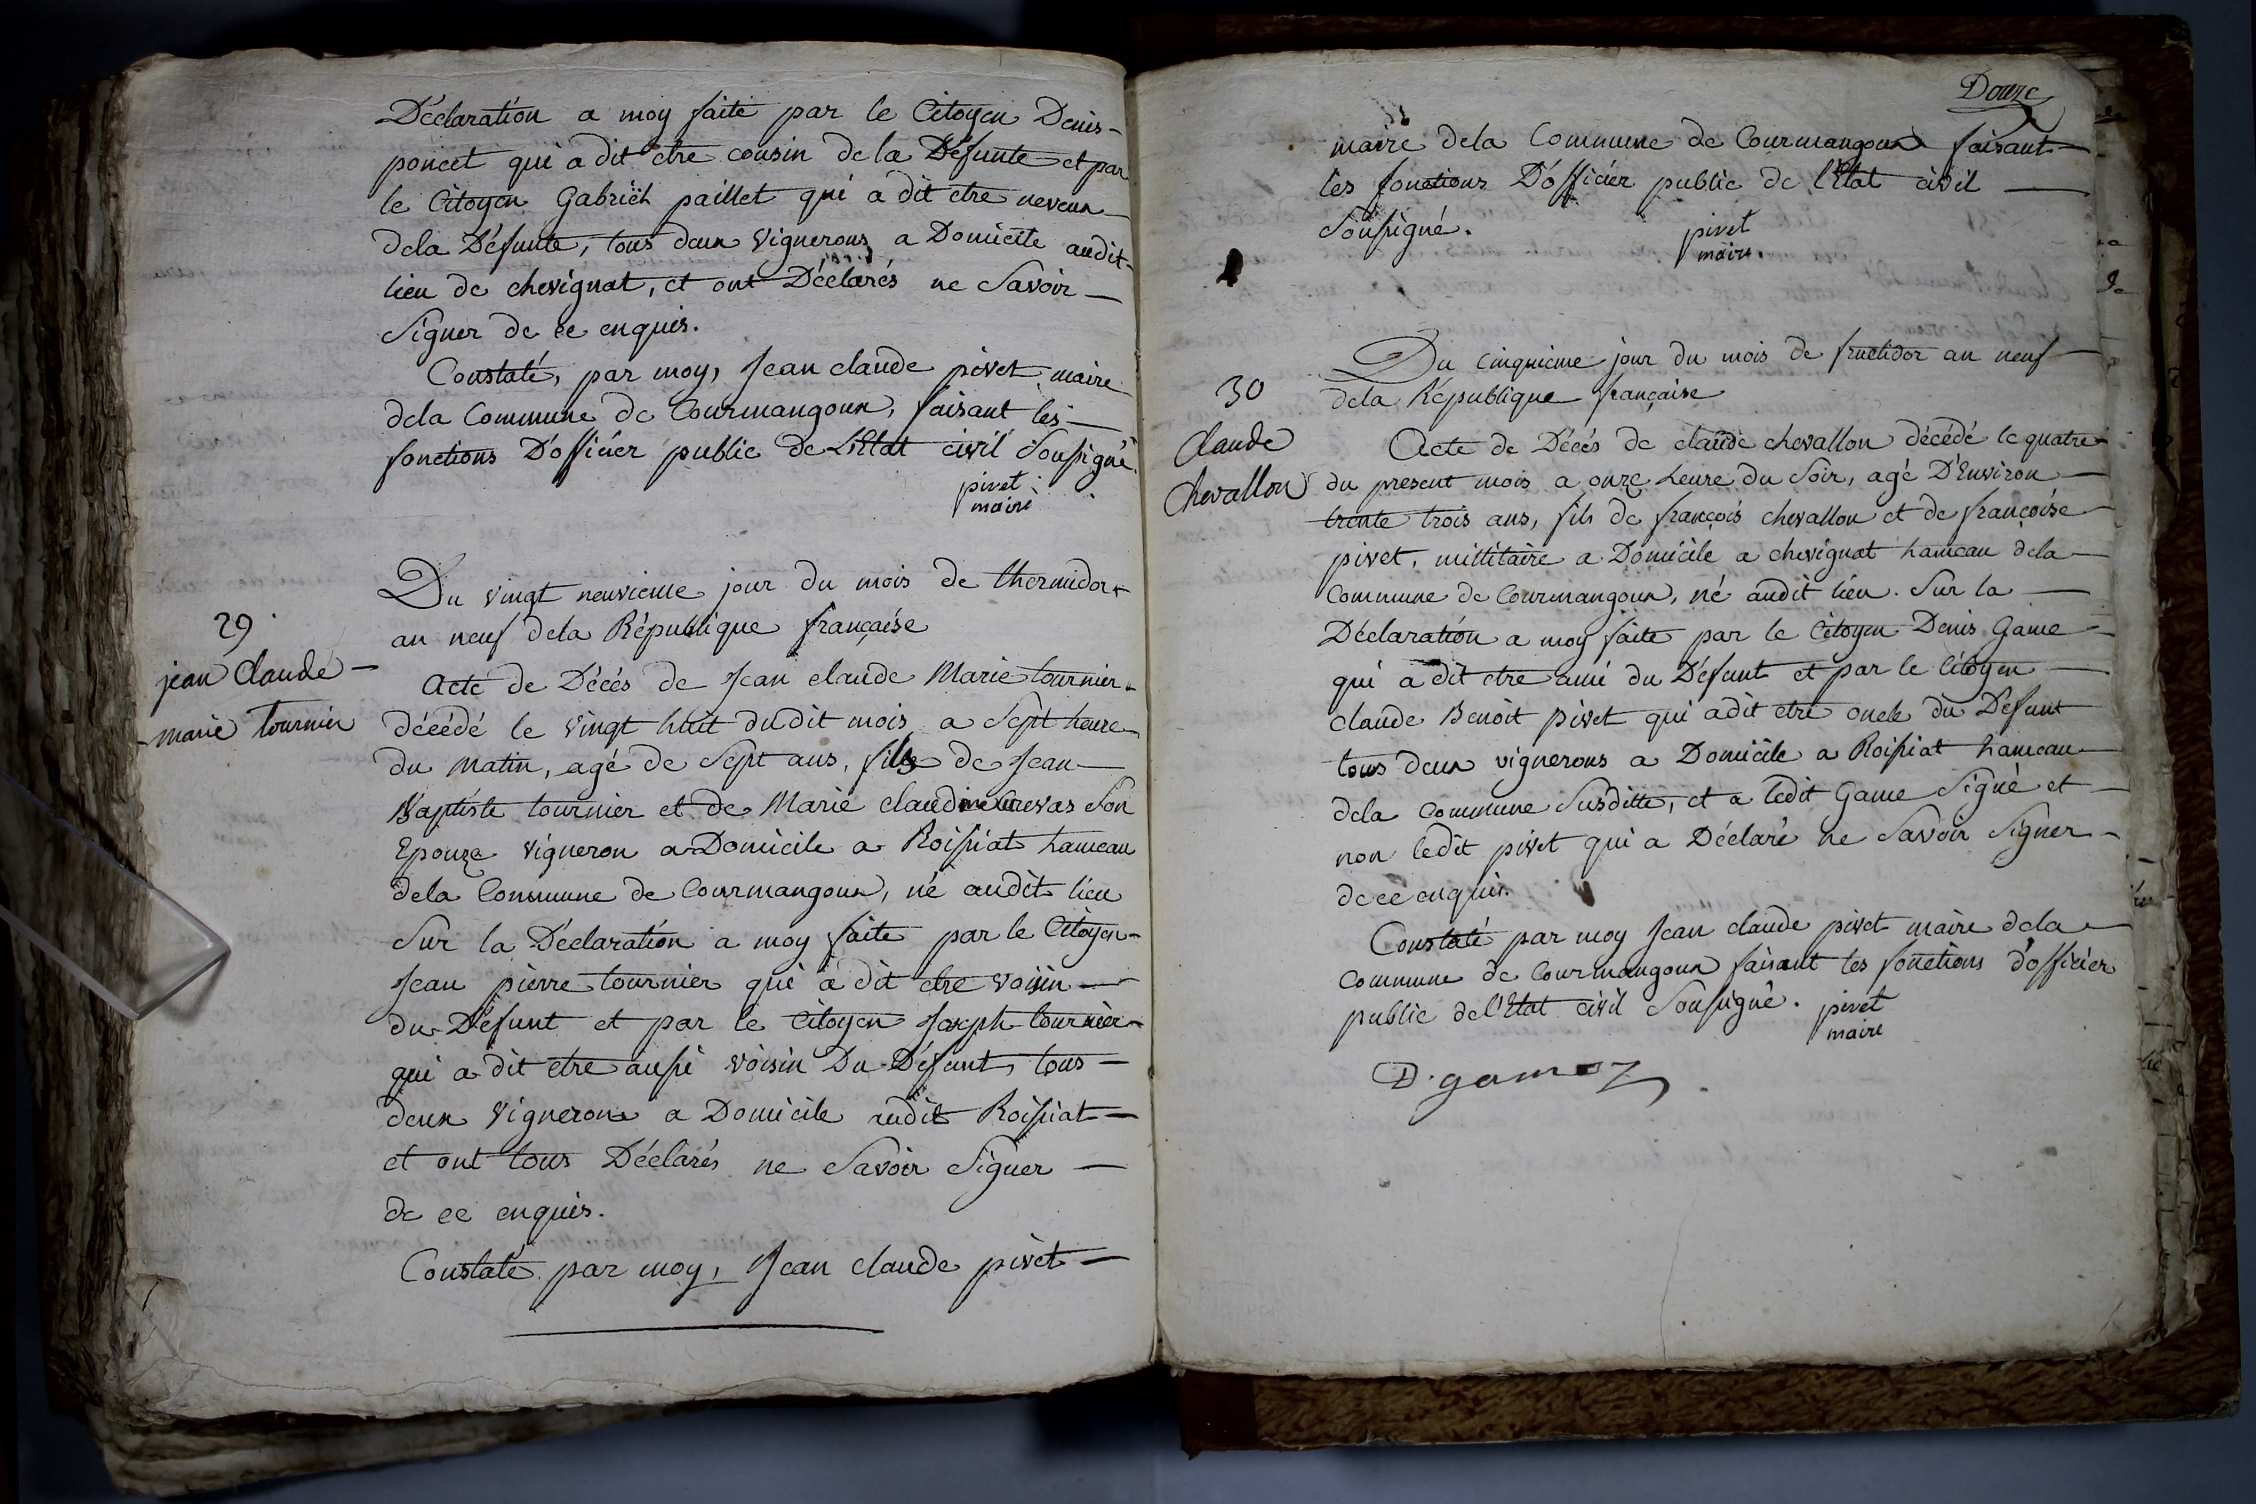 Déclaration a moy faite par le Citoyen Denis-
poncet qui a dit etre cousin de la Défunte et par
le Citoyen Gabriël paillet qui a dit etre neveux
dela Défunte, tous deux Vignerons a Domicille audit-
lieu de chevignat, et ont Déclarés ne Savoir —
Signer de ce enquis.
Constaté, par moy, Jean claude pivet maire
dela Commune de Courmangoux, faisant les —
fonctions D'officier public de L'Etat civil Soussigné.
pivet
maire
29.
jean Claude —
marie tournier
Du vingt neuvieme jour du mois de thermidor
an neuf dela République française
Acte de Décés de Jean claude Marie tournier
décédé le vingt huit dudit mois a Sept heure
du Matin, agé de Sept ans, fils de Jean —
Baptiste tournier et de Marie claudine Crevas Son
Epouze Vigneron a Domicile a Roissiat hameau
dela Commune de Courmangoux, né audit lieu
Sur la Déclaration a moy faite par le Citoyen-
Jean pierre tournier qui a dit etre voisin —
du Défunt et par le Citoyen Joseph tournier
qui a dit etre aussi voisin Du Défunt, tous —
deux Vignerons a Domicile audit Roissiat —
et ont tous Déclarés ne Savoir Signer —
de ce enquis.
Constaté par moy, Jean claude pivet —
Douze
maire dela Commune de Courmangoux faisant —
les fonctions D'officier public de l'Etat civil —
Soussigné.
pivet
maire.
30
Claude
Chevallon
Du cinquieme jour du mois de fructidor an neuf —
dela République française
Acte de Décés de claude chevallon décédé le quatre
du present mois a onze heure du Soir, agé D'Environ —
trente trois ans, fils de françois chevallon et de françoise
pivet, millitaire a Domicile a chevignat hameau dela —
Commune de Courmangoux, né audit lieu. Sur la —
Déclaration a moy faite par le Citoyen Denis Game —
qui a dit etre ami du Défunt et par le Citoyen —
claude Benoit pivet qui a dit etre oncle du Defunt
tous deux vignerons a Domicile a Roissiat hameau —
dela Commune Susditte, et a ledit Game Signé et —
non ledit pivet qui a Déclaré ne Savoir Signer —
de ce enquis.
Constaté par moy Jean claude pivet maire dela —
Commune de Courmangoux faisant les fonctions d'officier
public de l'Etat civil Soussigné. pivet
maire
D. gamez